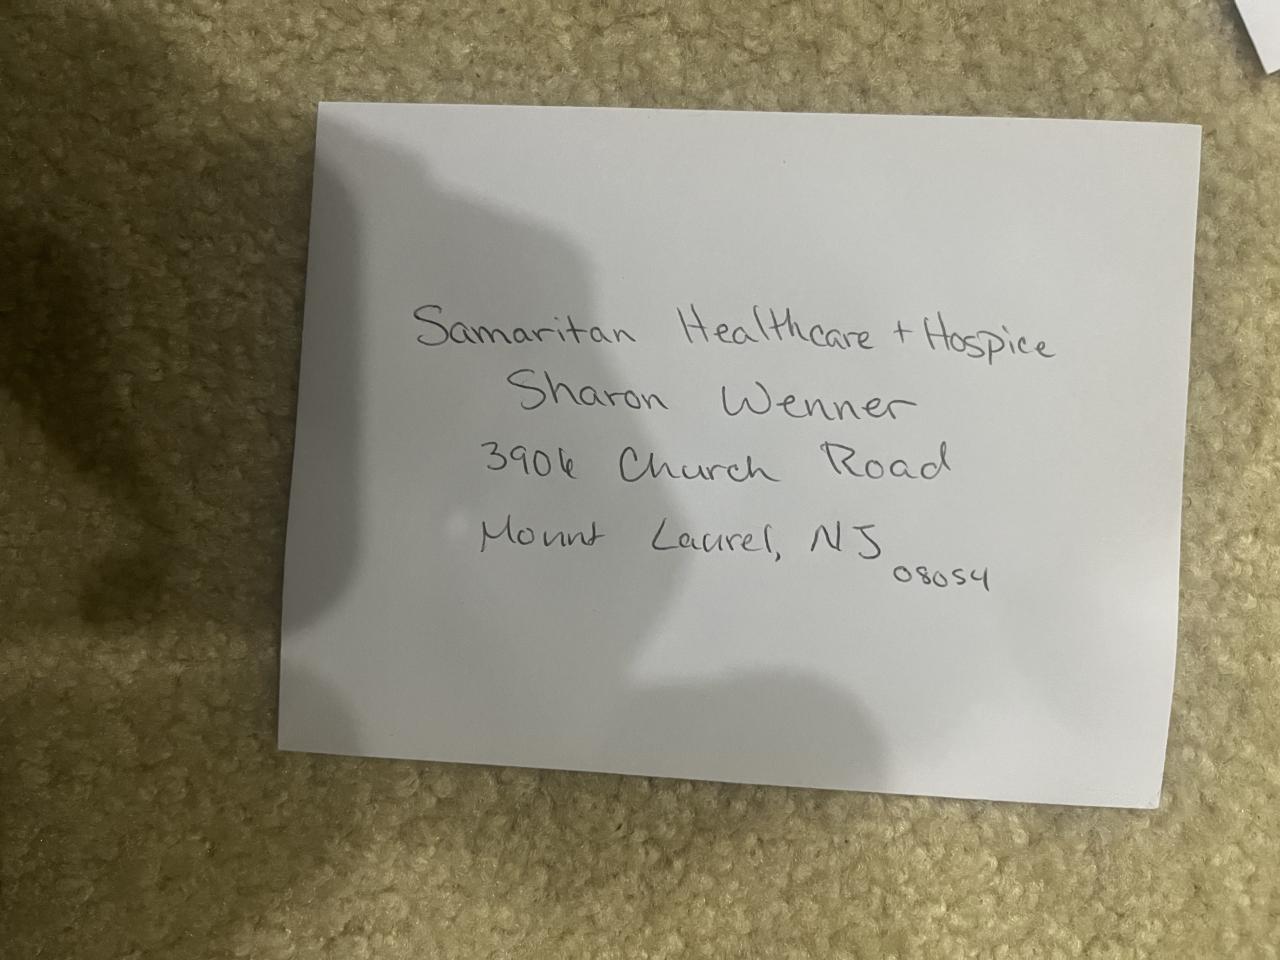 Samaritan Healthcare + Hospice
Sharon Wenner
3906 Church Road
Mount Laurel, NJ
08054